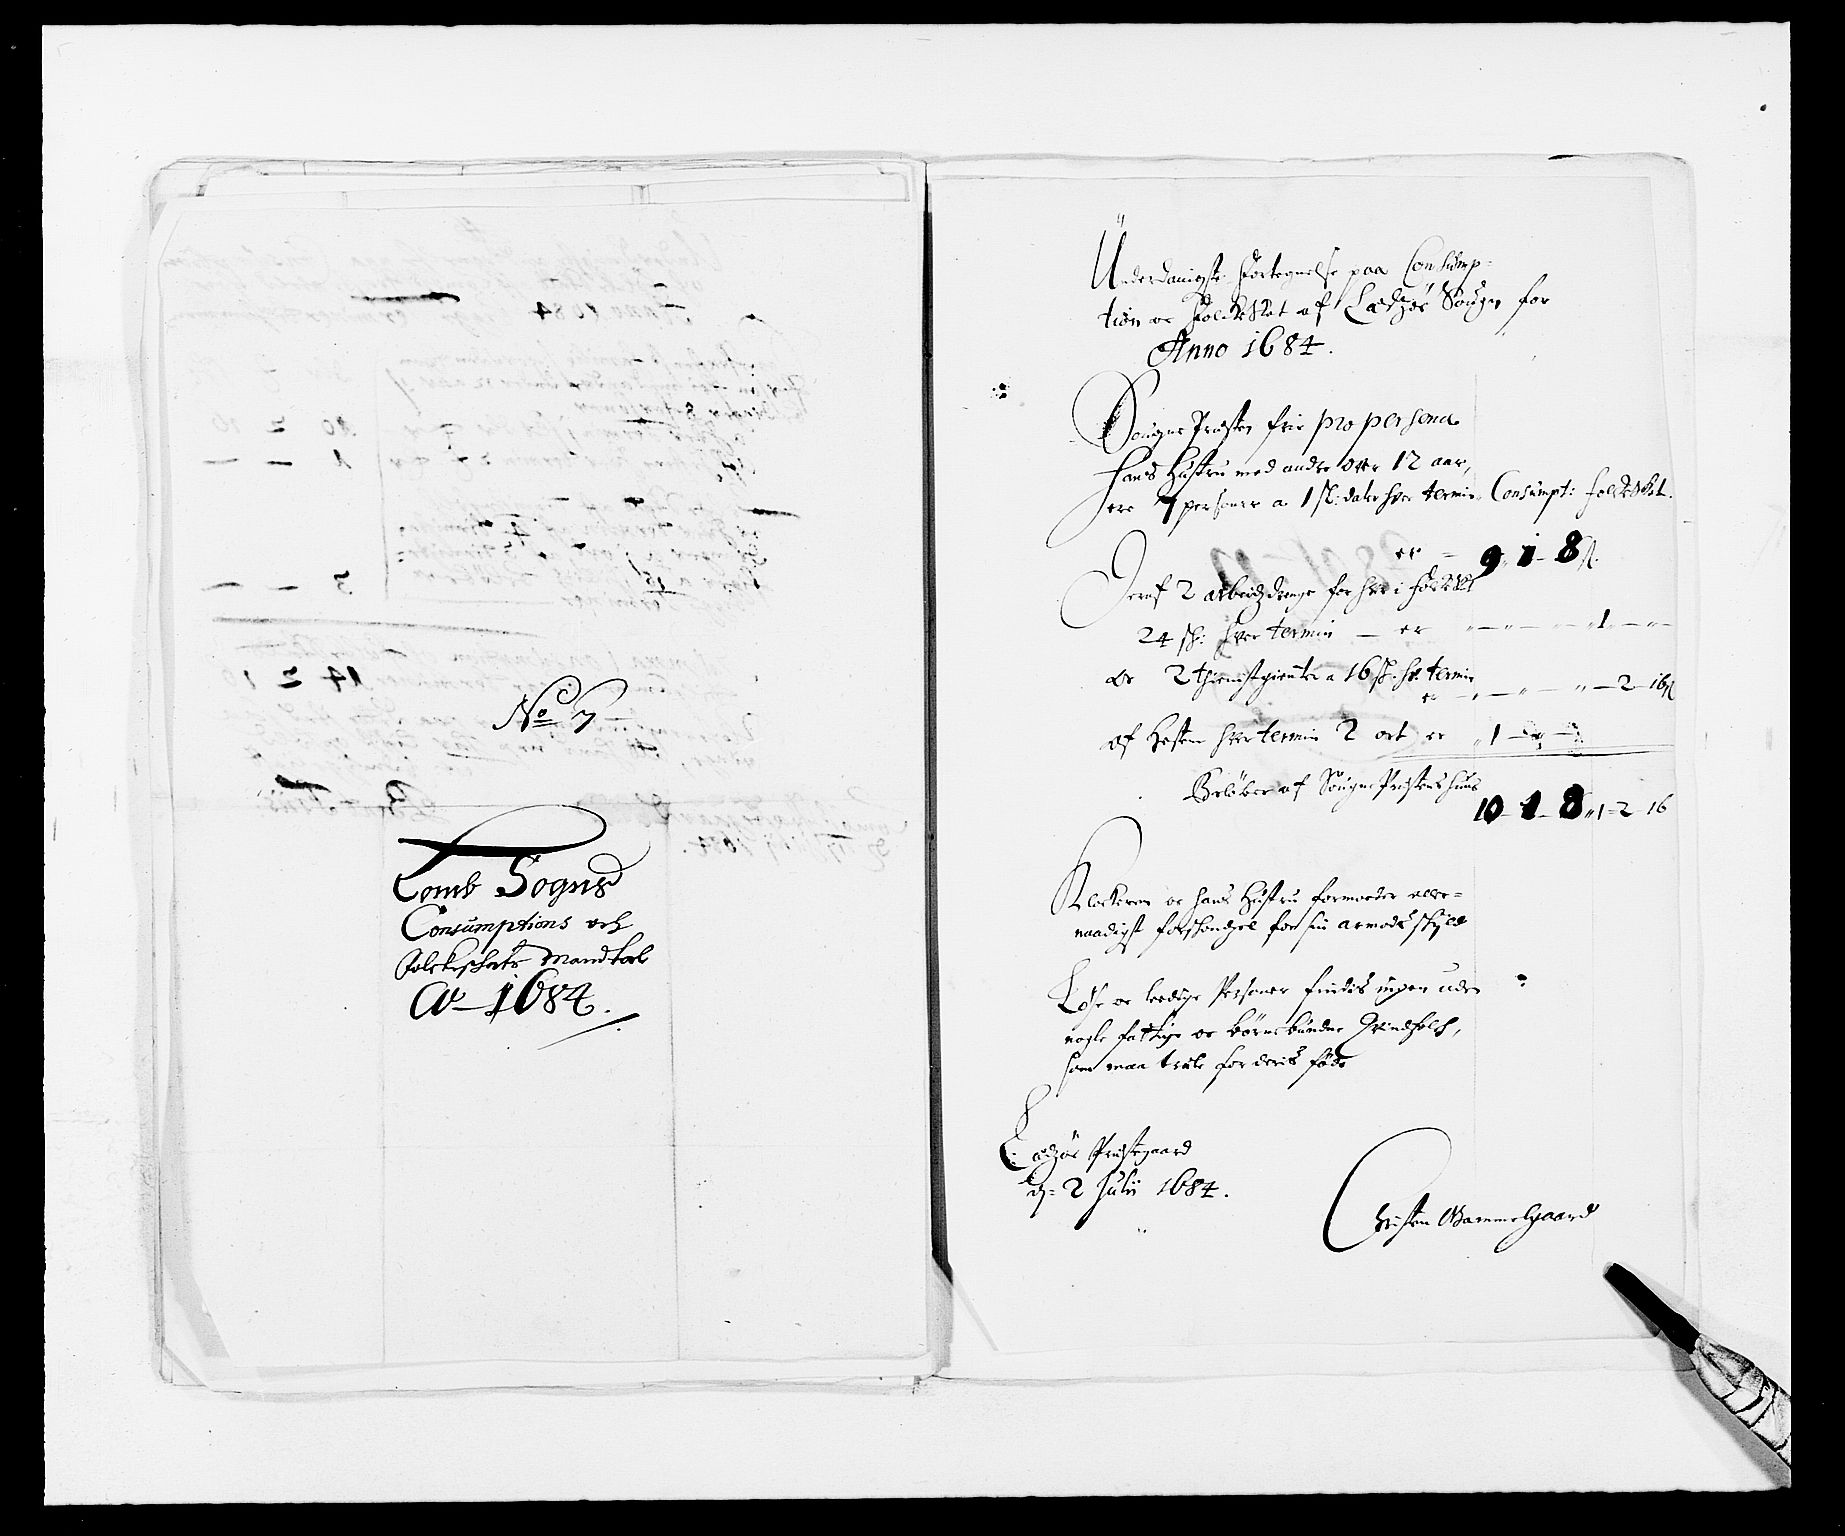 No 7
Lomb Sogns
Consumptions och
Folckeschats Mandtal
Ao 1684.
Underdanigste Fortegnelse paa Consump-
tion oc Folckeskat af Ladzøe Sougn for
Anno 1684.
Sougne Præsten frie pro persona
Hans Hustru med andre over 12 aar,
ere 7 personer a 1 sl: daler hver termin Consumpt: Folckeskat.
er - 9 - 1 - 8 s.
Heraf 2 arbeidzdrenge for hver i Folckeskat
24 sh: hver termin - er 1
oc 2 thienistpienter a 16 sh. hr. termin
er 2 - 16 s
af Hesten hver termin 2 ort er 1
Beløber af Sougne Præstens huus
10 - 1 - 8 1 - 2 - 16
Klockeren oc hans Hustru formoeder aller-
naadigst forschondsel for sin armods schyld
Løse oc ledige Personer findis ingen uden
nogle fattige oc børnebundne Qvindfolch,
som maa træle for deris føde
Ladzøe Præstegaard
dn 2 Julii 1684.
Christen Gammelgaard